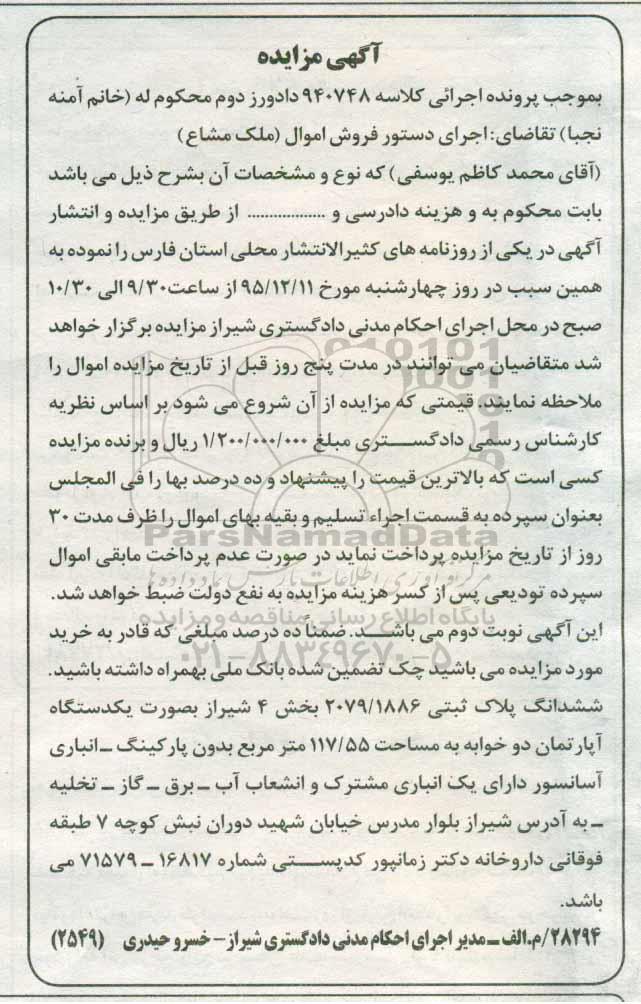 آگهی مزایده
بموجب پرونده اجرائی کلاسه ۹۴۰۷۴۸ دادورز دوم محکوم له (خانم آمنه
نجبا) تقاضای: اجرای دستور فروش اموال (ملک مشاع)
(آقای محمد کاظم یوسفی) که نوع و مشخصات آن بشرح ذیل می باشد
بابت محکوم به و هزینه دادرسی و .................. از طریق مزایده و انتشار
آگهی در یکی از روزنامه های کثیرالانتشار محلی استان فارس را نموده به
همین سبب در روز چهارشنبه مورخ ۹۵/۱۲/۱۱ از ساعت۹/۳۰ الی ۱۰/۳۰
صبح در محل اجرای احکام مدنی دادگستری شیراز مزایده برگزار خواهد
شد متقاضیان می توانند در مدت پنج روز قبل از تاریخ مزایده اموال را
ملاحظه نمایند. قیمتی که مزایده از آن شروع می شود بر اساس نظریه
کارشناس رسمی دادگستری مبلغ ۱/۲۰۰/۰۰۰/۰۰۰ ریال و برنده مزایده
کسی است که بالاترین قیمت را پیشنهاد و ده درصد بها را فی المجلس
بعنوان سپرده به قسمت اجراء تسلیم و بقیه بهای اموال را ظرف مدت ۳۰
ParsNamadData
روز از تاریخ مزایده پرداخت نماید در صورت عدم پرداخت مابقی اموال
مرکز فرآوری اطلاعات پارس نماد داده ها
سپرده تودیعی پس از کسر هزینه مزایده به نفع دولت ضبط خواهد شد.
پایگاه اطلاع رسانی مناقصه و مزایده
این آگهی نوبت دوم می باشد. ضمناً ده درصد مبلغی که قادر به خرید
۰۲۱-۸۸۳۴۹۶۷۰-۵
مورد مزایده می باشید چک تضمین شده بانک ملی بهمراه داشته باشید.
ششدانگ پلاک ثبتی ۲۰۷۹/۱۸۸۶ بخش ۴ شیراز بصورت یکدستگاه
آپارتمان دو خوابه به مساحت ۱۱۷/۵۵ متر مربع بدون پارکینگ ــ انباری
آسانسور دارای یک انباری مشترک و انشعاب آب ــ برق ــ گاز ــ تخلیه
ــ به آدرس شیراز بلوار مدرس خیابان شهید دوران نبش کوچه ۷ طبقه
فوقانی داروخانه دکتر زمانپور کدپستی شماره ۱۶۸۱۷ ــ ۷۱۵۷۹ می
باشد.
۲۸۲۹۴/م.الف ــ مدیر اجرای احکام مدنی دادگستری شیراز - خسرو حیدری (۲۵۴۹)